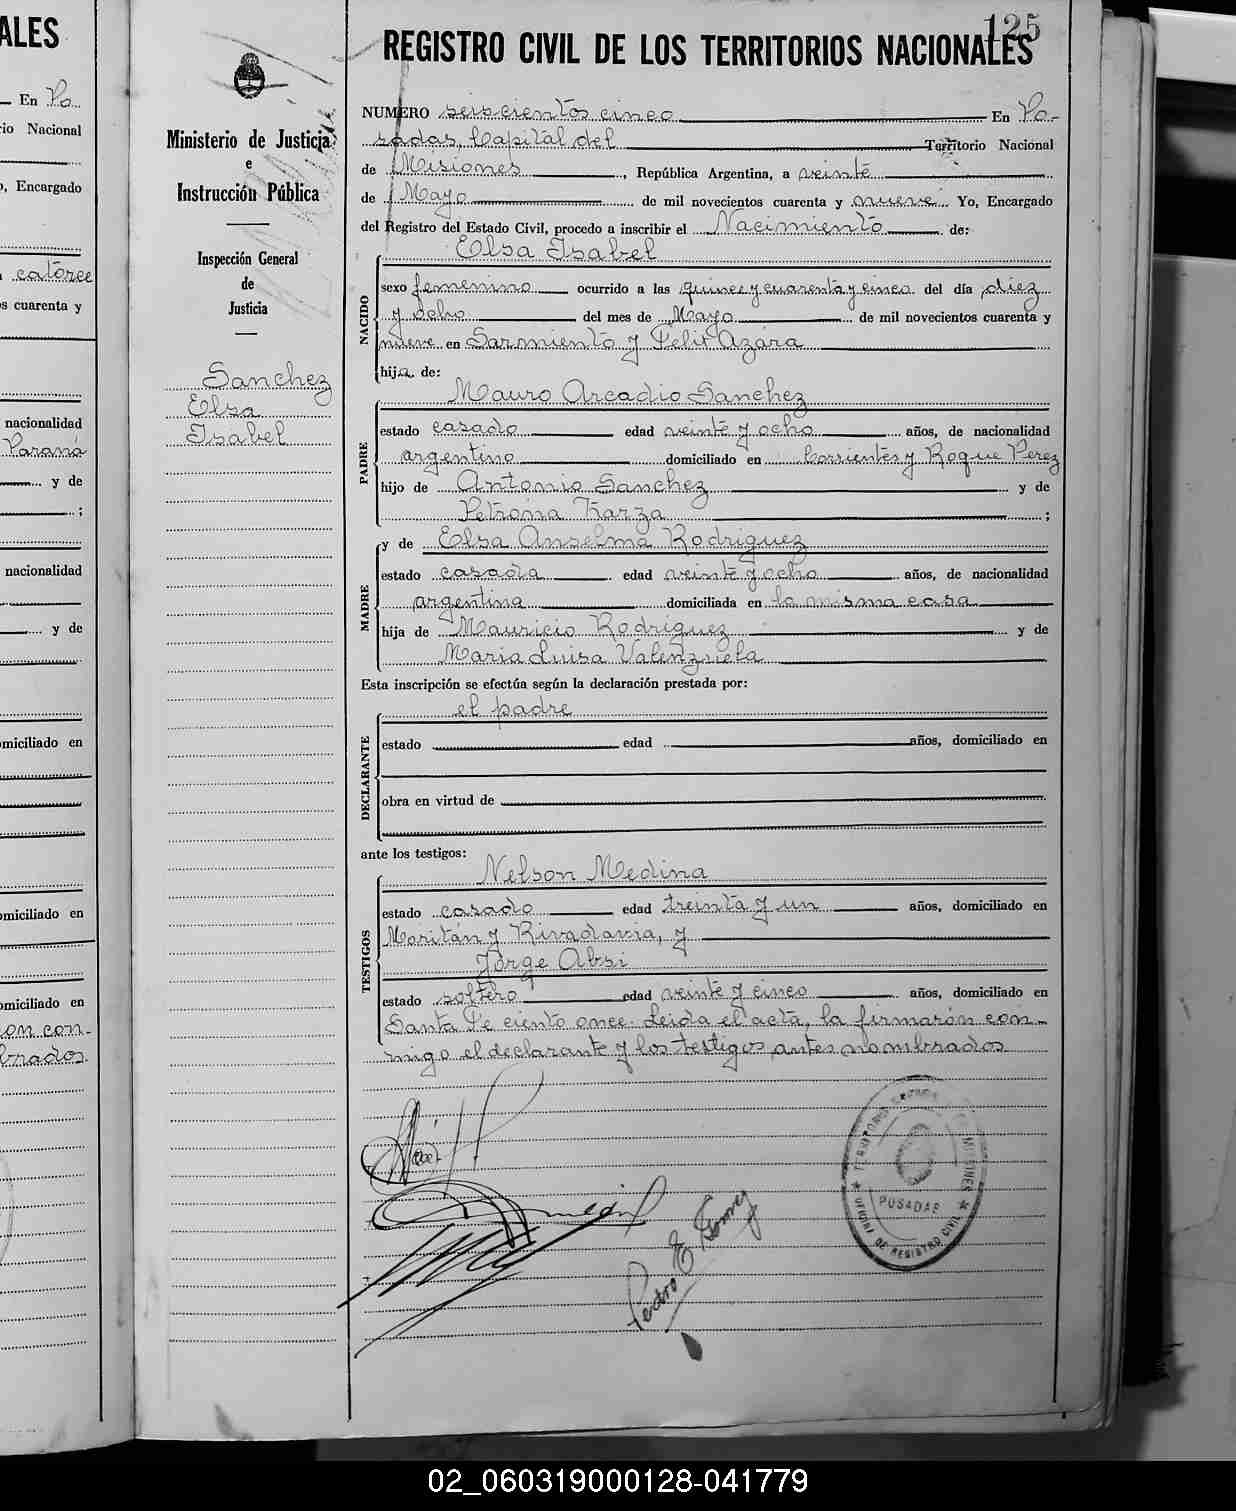 ALES
En Po
rio Nacional
, Encargado
catorce
s cuarenta y
nacionalidad
Paraná
y de
;
nacionalidad
y de
miciliado en
omiciliado en
omiciliado en
on con-
brados.
Ministerio de Justicia
e
Instrucción Pública
Inspección General
de
Justicia
Sanchez
Elsa
Isabel
125
REGISTRO CIVIL DE LOS TERRITORIOS NACIONALES
NUMERO seiscientos cinco En Po-
sadas, Capital del Territorio Nacional
de Misiones, República Argentina, a veinte
de Mayo de mil novecientos cuarenta y nueve Yo, Encargado
del Registro del Estado Civil, procedo a inscribir el Nacimiento de:
NACIDO
Elsa Isabel
sexo femenino ocurrido a las quince y cuarenta y cinco del día diez
y ocho del mes de Mayo de mil novecientos cuarenta y
nueve en Sarmiento y Felix Azara
hija de:
PADRE
Mauro Arcadio Sanchez
estado casado edad veinte y ocho años, de nacionalidad
argentino domiciliado en Corrientes y Roque Perez
hijo de Antonio Sanchez y de
Petrona Izarza;
MADRE
y de Elsa Anselma Rodriguez
estado casada edad veinte y ocho años, de nacionalidad
argentina domiciliada en la misma casa
hija de Mauricio Rodriguez y de
Maria Luisa Valenzuela
Esta inscripción se efectúa según la declaración prestada por:
DECLARANTE
el padre
estado edad años, domiciliado en
obra en virtud de
ante los testigos:
TESTIGOS
Nelson Medina
estado casado edad treinta y un años, domiciliado en
Moritán y Rivadavia, y
Jorge Absi
estado soltero edad veinte y cinco años, domiciliado en
Santa Fé ciento once. Leida el acta, la firmarón con-
migo el declarante y los testigos antes nombrados
Pedro E. Gomez
TERRITORIO NACIONAL DE MISIONES
POSADAS
OFICINA DE REGISTRO CIVIL
02_060319000128-041779